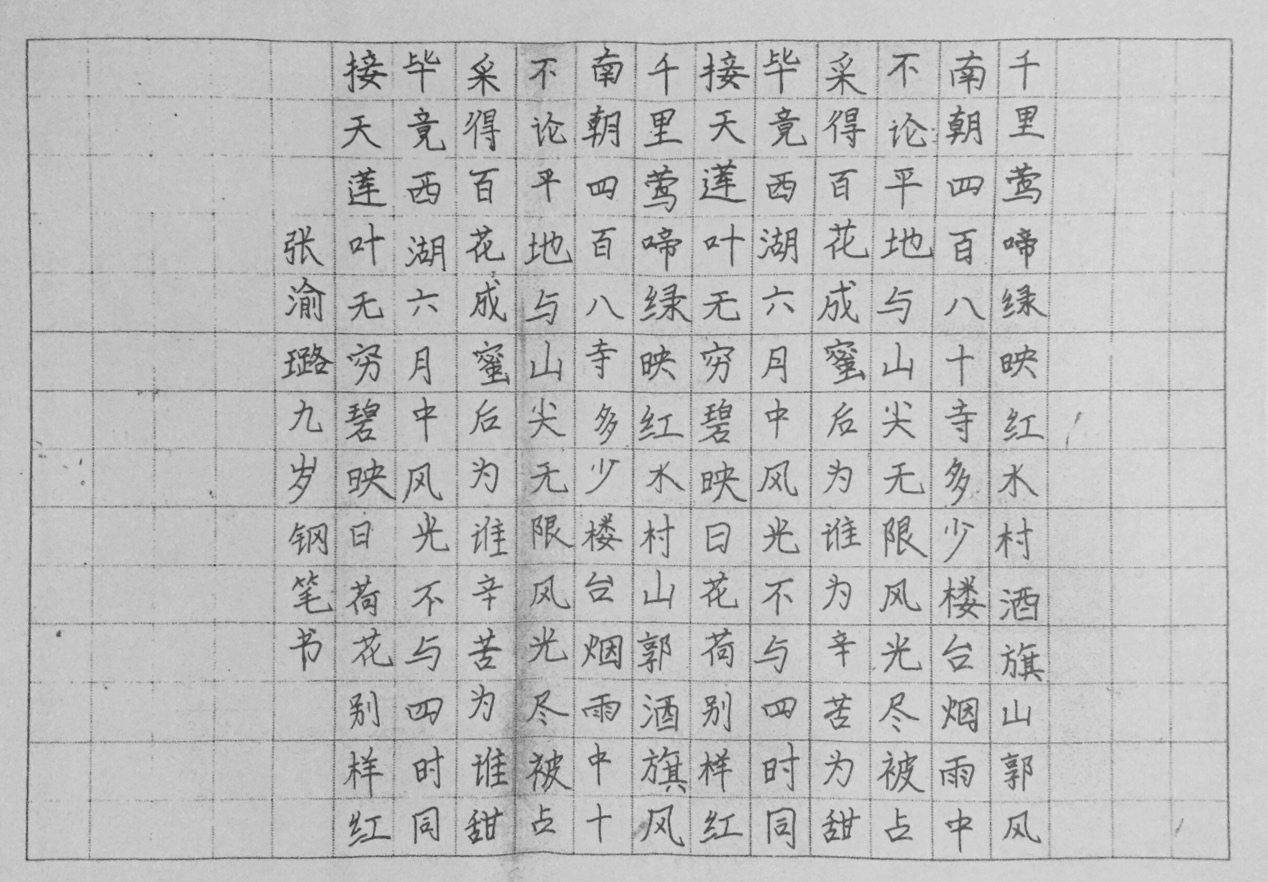 千里莺啼绿映红水村酒旗山郭风
南朝四百八十寺多少楼台烟雨中
不论平地与山尖无限风光尽被占
采得百花成蜜后为谁为辛苦为甜
毕竟西湖六月中风光不与四时同
接天莲叶无穷碧映日花荷别样红
千里莺啼绿映红水村山郭酒旗风
南朝四百八寺多少楼台烟雨中十
不论平地与山尖无限风光尽被占
采得百花成蜜后为谁辛苦为谁甜
毕竟西湖六月中风光不与四时同
接天莲叶无穷碧映日荷花别样红
张渝璐九岁钢笔书